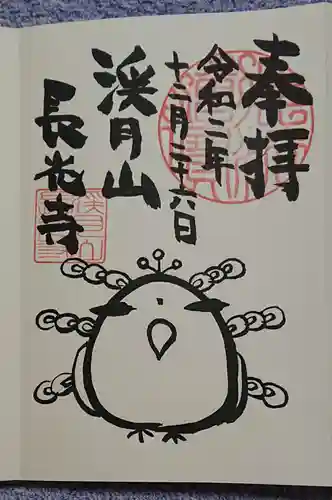 奉拝
令和二年
十二月二十六日
渓月山
長光寺